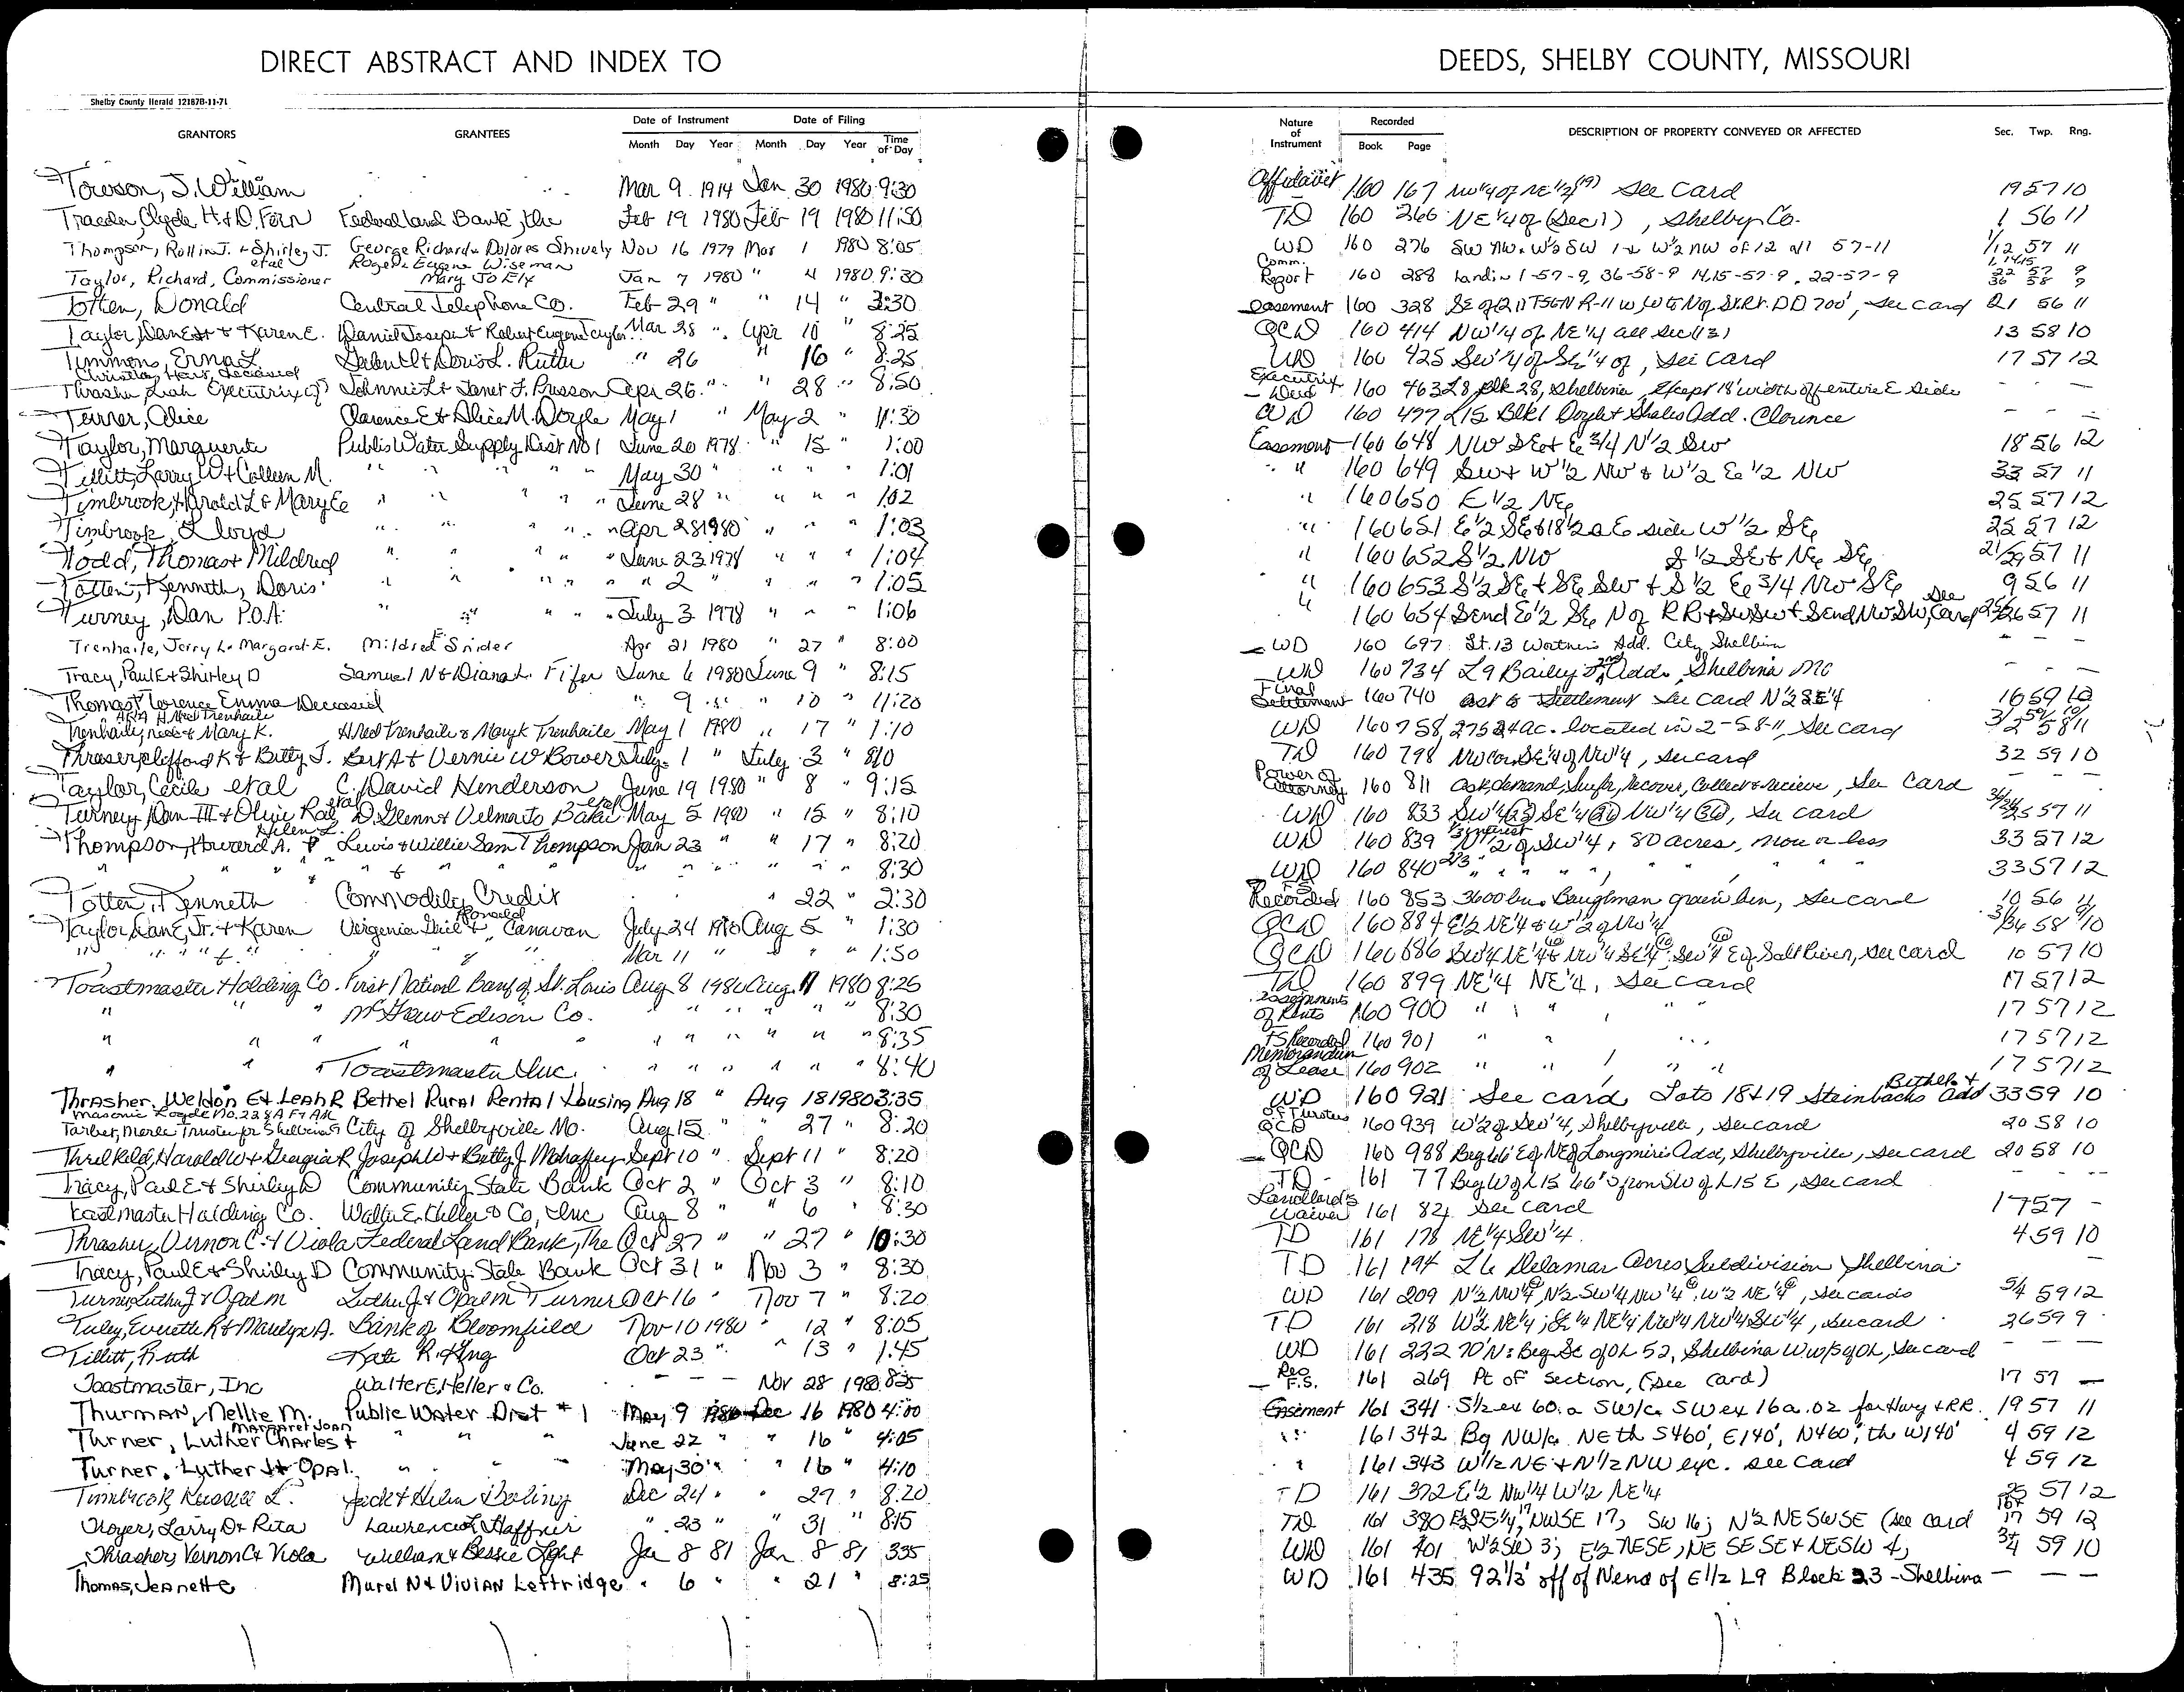 DIRECT ABSTRACT AND INDEX TO DEEDS, SHELBY COUNTY, MISSOURI
Shelby County Herald 12187B-11-71
GRANTORS GRANTEES Date of Instrument Date of Filing Nature of Instrument Recorded DESCRIPTION OF PROPERTY CONVEYED OR AFFECTED Sec. Twp. Rng.
Month Day Year Month Day Year Time of Day Book Page
Towson, J. William Mar 9 1914 Jan 30 1980 9:30 Affidavit 160 167 NW 1/4 of NE 1/2 (19) See Card 19 57 10
Traeder, Clyde H. & D. Fern Federal Land Bank, the Feb 19 1980 Feb 19 1980 11:50 TD 160 266 NE 1/4 of (Sec 1), Shelby Co. 1 56 11
Thompson, Rollin J. & Shirley J. George Richard & Dolores Shively Nov 16 1979 Mar 1 1980 8:05 WD 160 276 SW NW & W 1/2 SW 1 & W 1/2 NW of 12 all 57-11 1/12 57 11
Taylor, Richard, Commissioner etal Roger & Eugene Wiseman Mary Jo Ely Jan 7 1980 " 4 1980 9:30 Comm. Report 160 288 Land in 1-57-9, 36-58-9 14,15-57-9, 22-57-9 1,14,15 22 57 9 36 58 9
Totten, Donald Central Telephone Co. Feb 29 " " 14 " 3:30 Easement 160 328 SE of 21 T56N R-11 W, W & N of St. Rt. DD 700', see card 21 56 11
Taylor, Dan E & Karen E. Daniel Joseph & Robert Eugene Taylor Mar 28 " Apr 10 " 8:25 QCD 160 414 NW 1/4 of NE 1/4 all sec (13) 13 58 10
Timmons, Erma L. & Doris L. Rutter " 26 " 16 " 8:25 WD 160 425 SW 1/4 of SE 1/4 of, see card 17 57 12
Thrasher, Leah Executrix of Christine Hows, Deceased Johnnie L & Janet F. Presson Apr 26 " " 28 " 8:50 Executrix Deed 160 463 L8 Blk 28, Shelbina, Except 18' width off entire E side - - -
Turner, Alice Clarence E & Alice M. Doyle May 1 " May 2 " 11:30 WD 160 477 L15 Blk 1 Doyle & Shales Add. Clarence - - -
Taylor, Marguerite Public Water Supply Dist No 1 June 20 1978 " 15 " 1:00 Easement 160 648 NW SE & E 3/4 N 1/2 SW 18 56 12
Tillitt, Larry W & Colleen M. " " " " May 30 " " " " 1:01 " 160 649 SW & W 1/2 NW & W 1/2 E 1/2 NW 33 57 11
Timbrook, Harold L & Mary E " " " " June 28 " " " " 1:02 " 160 650 E 1/2 NE 25 57 12
Timbrook, Lloyd " " " " Apr 28 1980 " " " 1:03 " 160 651 E 1/2 SE & 18 1/2 a E side W 1/2 SE 25 57 12
Todd, Thomas & Mildred " " " " June 23 1978 " " " 1:04 " 160 652 S 1/2 NW S 1/2 SE & NE SE 21/29 57 11
Totten, Kenneth, Doris " " " " " 2 " " " " 1:05 " 160 653 S 1/2 SE & SE SW & S 1/2 E 3/4 NW SE 9 56 11
Turney, Dan P.O.A. " " " " July 3 1978 " " " 1:06 " 160 654 S end E 1/2 SE N of RR & SW SW & S end NW SW, see Card 26 57 11
Trenhaile, Jerry L. Margaret E. Mildred E. Snider Apr 21 1980 " 27 " 8:00 WD 160 697 Lt. 13 Add. City Shelbina - - -
Tracy, Paul E & Shirley D Samuel N & Diana L. Fifer June 6 1980 June 9 " 8:15 WD 160 734 L9 Bailey's 2nd Add., Shelbina Mo - - -
Thomas, Florence Emma Deceased " 9 " " 10 " 11:20 Final Settlement 160 740 Settlement See card N 1/2 SE 1/4 16 59 10
Trenhaile, & Mary K. AKA H. Ned Trenhaile H Ned Trenhaile & Mary K Trenhaile May 1 1980 " 17 " 1:10 WD 160 758, ac. located in 2-58-11, See card 2 58 11
Thraser, Clifford K & Betty J. Bert A & Vernie W Bower July 1 " July 3 " 8:10 TD 160 798 NW cor SE 1/4 of NW 1/4, see card 32 59 10
Taylor, Cecile etal C. David Henderson June 19 1980 " 8 " 9:15 Power of Attorney 160 811 Ask, demand, sue for, recover, collect & recieve, See Card - - -
Turney, Dan III & Olive Rae etal D. Glenn & Velma Jo Baker etal May 5 1980 " 15 " 8:10 WD 160 833 SW 1/4 (23) SE 1/4 (26) NW 1/4 (26), See card 57 11
Thompson, Howard A. & Helen L. Lewis & Willie Sam Thompson Jan 23 " " 17 " 8:20 WD 160 839 1/3 interest N 1/2 of SW 1/4, 80 acres, more or less 33 57 12
" " " & " " " " " " " " " " 8:30 WD 160 840 2/3 " " " " " " " " 33 57 12
Totten, Kenneth Commodity Credit " 22 " 2:30 F.S. Recorded 160 853 3600 bu. Baughman grain bin, see card 10 56 11
Taylor, Dan E, Jr. & Karen Virginia Gail & Ronald Canavan July 24 1980 Aug 5 " 1:30 QCD 160 884 E 1/2 NE 1/4 & W 1/2 of NW 1/4 3/34 58 9/10
" " " & " " " " Mar 11 " " " " 1:50 QCD 160 886 SW 1/4 NE 1/4 & NW 1/4 SE 1/4; SW 1/4 E of Salt River, see card 10 57 10
Toastmaster Holding Co. First National Bank of St. Louis Aug 8 1980 Aug 11 1980 8:25 TD 160 899 NE 1/4 NE 1/4, See card 17 57 12
" " " McGraw Edison Co. " " " " " " 8:30 Assignments of Rents 160 900 " " " " 17 57 12
" " " " " " " " " " " " 8:35 F.S. Recorded 160 901 " " " 17 57 12
" " " Toastmaster Inc. " " " " " " 8:40 Memorandum of Lease 160 902 " " " " 17 57 12
Thrasher, Weldon E & Leah R Bethel Rural Rental Housing Aug 18 " Aug 18 1980 3:35 WD 160 921 See card Lots 18 & 19 Steinbachs Add Bethel & 33 59 10
Tarbet, Merle Trustee for Shelbina Masonic Lodge No. 228 AF & AM City of Shelbyville Mo. Aug 15 " " 27 " 8:20 QCD of Trustees 160 939 W 1/2 of SW 1/4, Shelbyville, see card 20 58 10
Threlkeld, Harold W & Georgia R Joseph W & Betty J. Mahaffey Sept 10 " Sept 11 " 8:20 QCD 160 988 Beg 66' E of NE of Longmire's Add, Shelbyville, see card 20 58 10
Tracy, Paul E & Shirley D Community State Bank Oct 2 " Oct 3 " 8:10 TD 161 77 Beg W of L15 66' S from SW of L15 E, see card - - -
Toastmaster Holding Co. Walter E. Heller & Co, Inc Aug 8 " " 6 " 8:30 Landlord's Waiver 161 82 see card 17 57 -
Thrasher, Vernon C. & Viola Federal Land Bank, The Oct 27 " " 27 " 10:30 TD 161 178 NE 1/4 SW 1/4 4 59 10
Tracy, Paul E & Shirley D Community State Bank Oct 31 " Nov 3 " 8:30 TD 161 194 L6 Delamar Acres Subdivision Shelbina -
Turner, Luther J & Opal M Luther J & Opal M Turner Oct 16 " Nov 7 " 8:20 WD 161 209 N 1/2 NW 1/4, N 1/2 SW 1/4 NW 1/4, W 1/2 NE 1/4, see cards 5/4 59 12
Tuley, Everette R & Marilyn A. Bank of Bloomfield Nov 10 1980 " 12 " 8:05 TD 161 218 W 1/2 NE 1/4; SE 1/4 NE 1/4 NW 1/4 NW 1/4 SW 1/4, see card 26 59 9
Tillitt, Ruth Kate R. King Oct 23 " " 13 " 1:45 WD 161 222 70' N: Beg SE of OL 52, Shelbina, see card - - -
Toastmaster, Inc Walter E. Heller & Co. - - - Nov 28 1980 8:25 Rec F.S. 161 269 Pt of Section, (see card) 17 57 -
Thurman, Nellie M. Public Water Dist #1 May 9 1980 Dec 16 1980 4:00 Easement 161 341 S 1/2 ex 60.a SW/c SW ex 16a.02 for Hwy & RR 19 57 11
Turner, Luther Charles & Margaret Joan " " " June 22 " " 16 " 4:05 " 161 342 Bg NW/c NE th S460', E140', N460', th W140' 4 59 12
Turner, Luther J & Opal " " " May 30 " " 16 " 4:10 " 161 343 W 1/2 NE & N 1/2 NW exc. see card 4 59 12
Timbrook, Russell L. Jack & Helen Boling Dec 24 " " 29 " 8:20 TD 161 372 E 1/2 NW 1/4 W 1/2 NE 1/4 25 57 12
Troyer, Larry D & Rita Lawrence L Haffner " 23 " " 31 " 8:15 TD 161 380 NWSE 17, SW 16; N 1/2 NE SW SE (see card 16+ 17 59 12
Thrasher, Vernon C & Viola William & Bessie Light Jan 8 81 Jan 8 81 3:35 WD 161 401 W 1/2 SW 3; E 1/2 NESE, NE SE SE & NESW 4, 3/4 59 10
Thomas, Jeanette Murel N & Vivian Lettridge " 6 " " 21 " 8:25 WD 161 435 92 1/3' off of N end of E 1/2 L9 Block 23 - Shelbina - - -